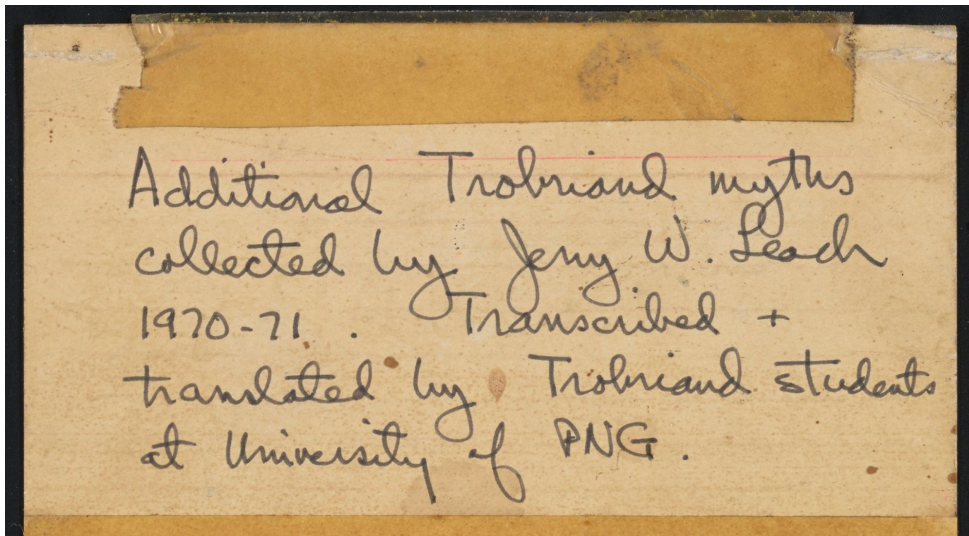 Additional Trobriand myths
collected by Jerry W. Leach
1970-71. Transcribed +
translated by Trobriand students
at University of PNG.